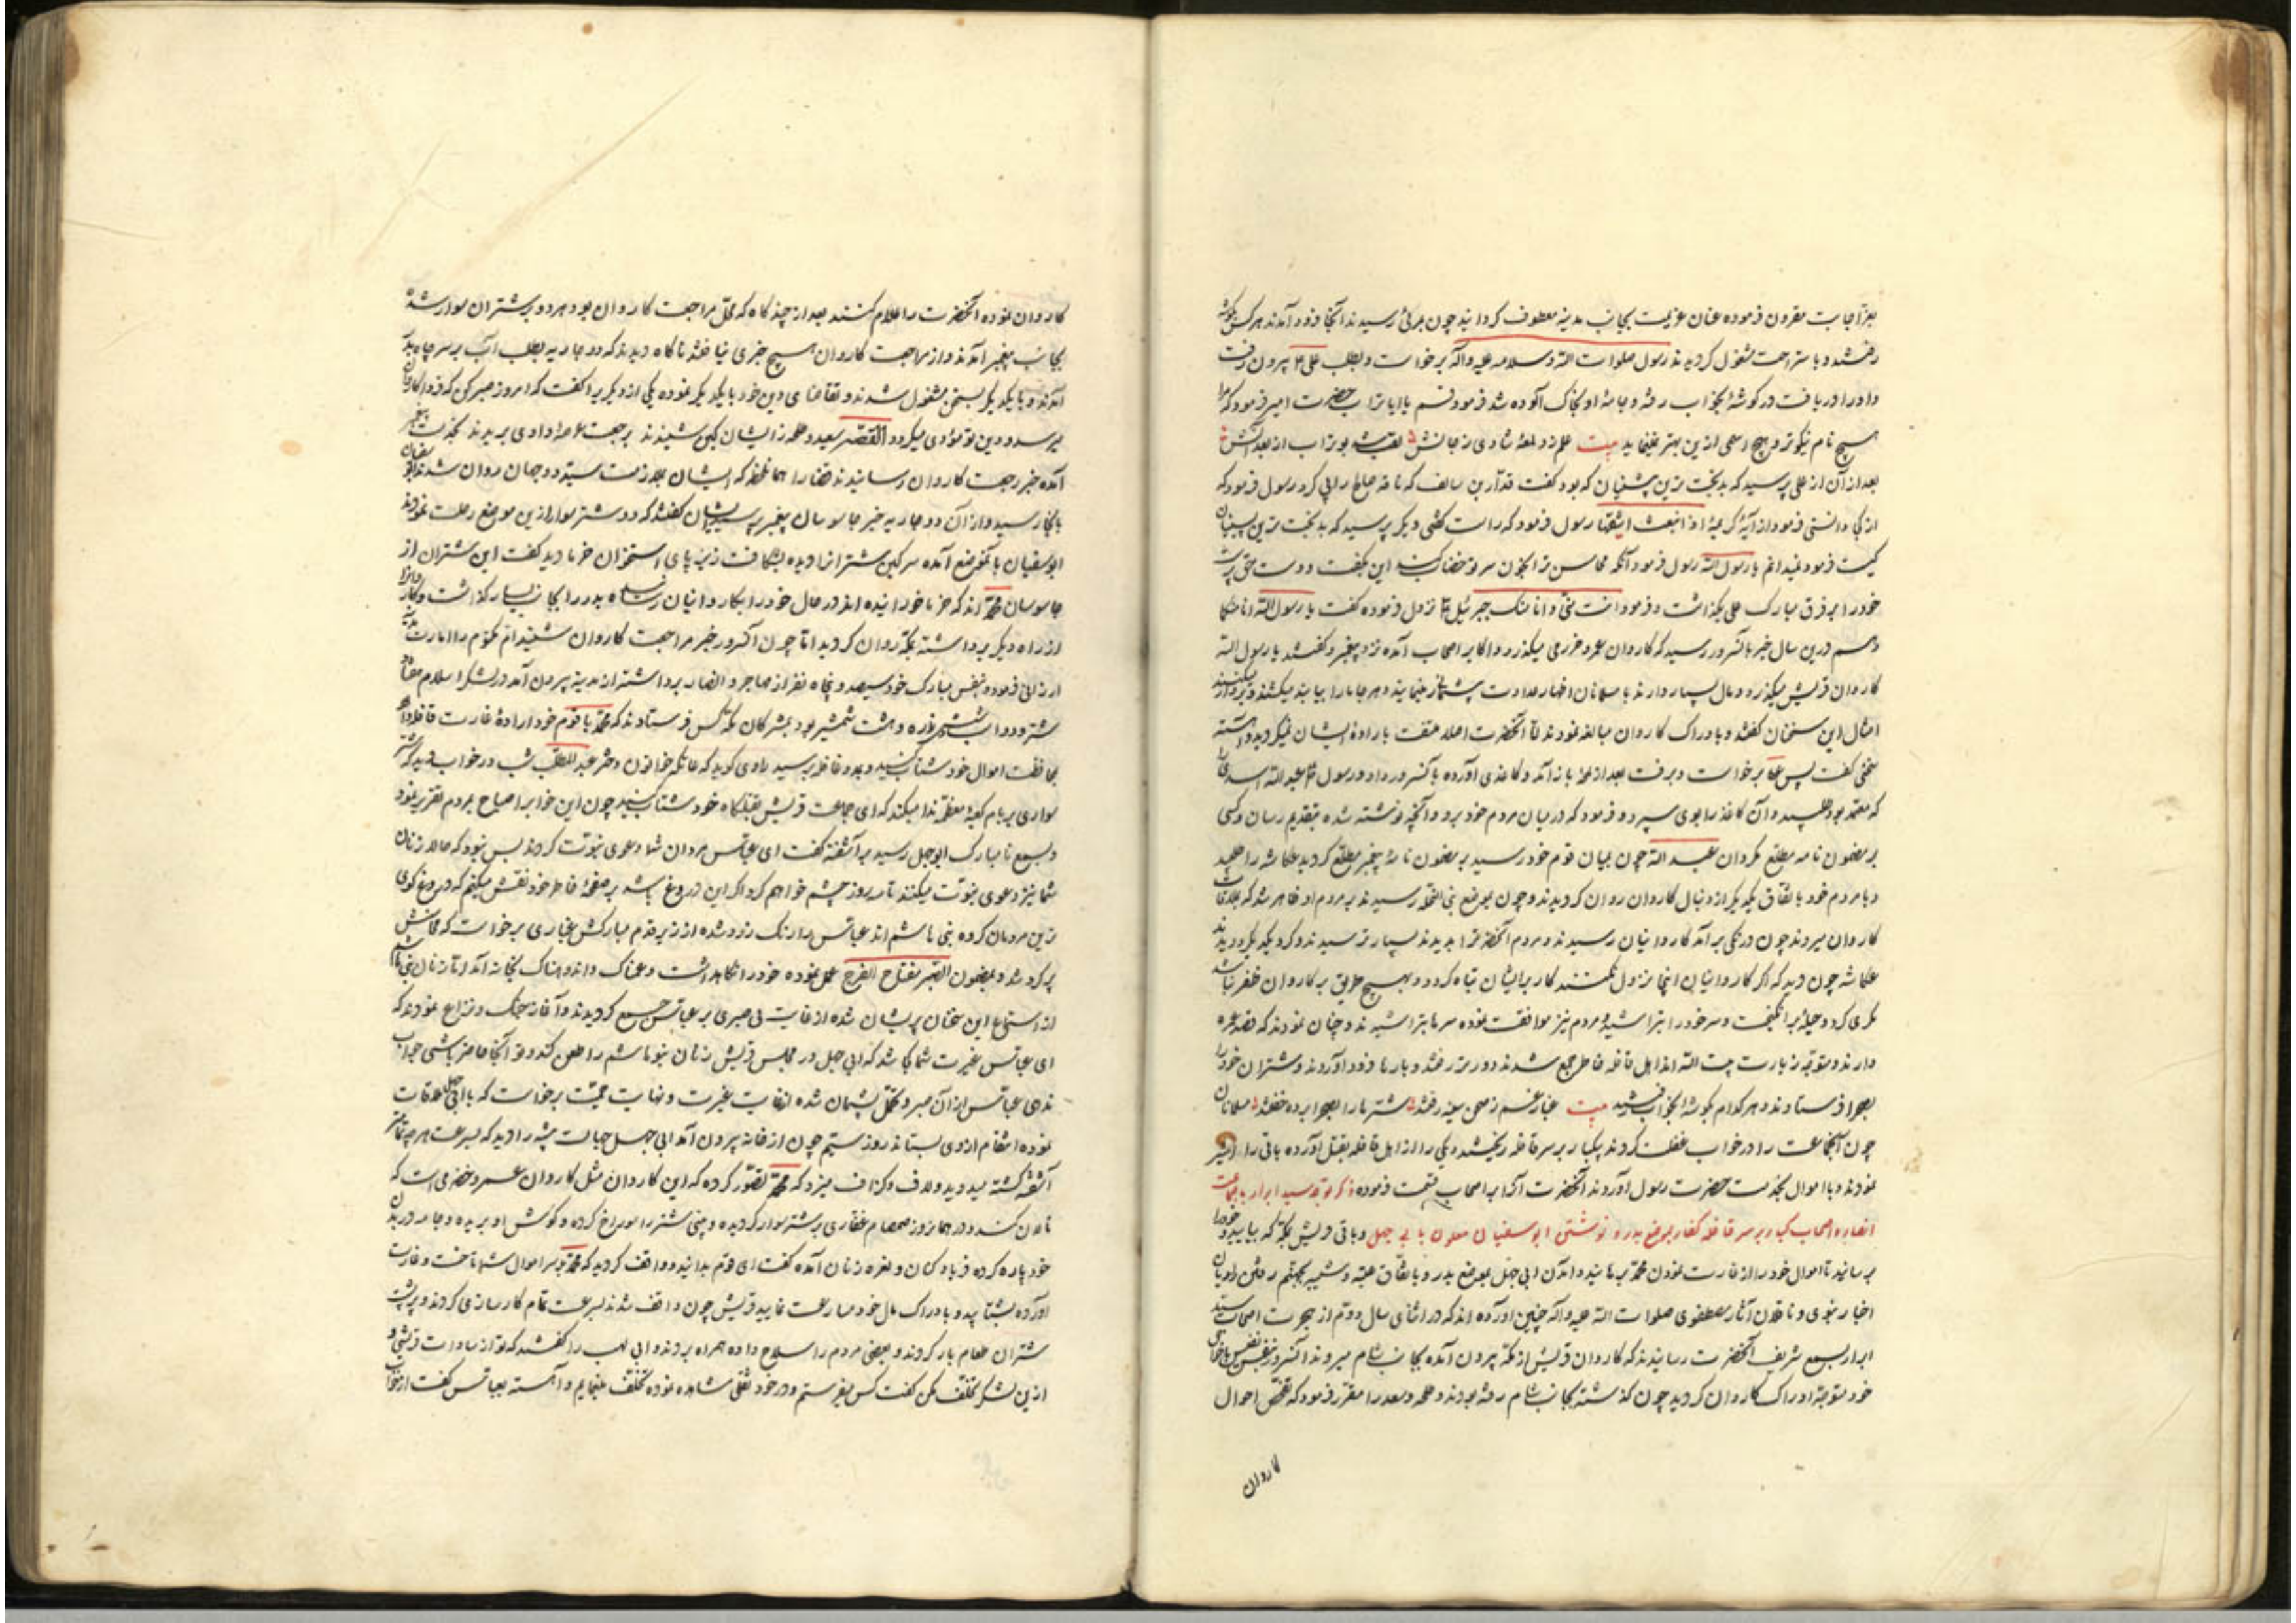 بعز اجابت مقرون فرموده عنان عزیمت بجانب مدینه معطوف کردانید چون بمرئی رسیدند آنجا فرود آمدند هرکس بکوشه
رفتند و باستراحت مشغول کردیدند رسول صلوات الله وسلامه علیه وآله برخواست و بطلب علی ع بیرون رفت
و او را دریافت در کوشه بخواب رفته و جامه او بخاک آلوده شد فرمود قم یا ابا تراب حضرت امیر فرمود که مرا
هیچ نام نیکوتر و هیچ اسمی ازین بهتر نمینماید بیت علم زد لمعه شادی ز جانش لقب شد بوتراب از بعد آنش
بعد از آن از علی پرسید که بدبخت ترین پیشنیان که بود کفت قدار بن سالف که ناقه صالح را پی کرد رسول فرمود که
از کجا دانستی فرمود از آیه کریمه اذ انبعث اشقیها رسول فرمود که راست کفتی دیکر پرسید که بدبخت ترین پسینیان
کیست فرمود نمیدانم یا رسول الله رسول فرمود آنکه محاسن ترا بخون سر تو خضاب کند این بکفت و دست حق پرست
خود را بر فرق مبارک علی بکذاشت و فرمود انت منی و انا منک جبرئیل ع نزول فرموده کفت یا رسول الله انا منکما
و هم درین سال خبر بآنسرور رسید که کاروان عمرو خزرمی میکذرد و اکابر اصحاب آمده نزد پیغمبر و کفتند یا رسول الله
کاروان قریش میکذرد و مال بسیار دارند با مسلمانان اظهار عداوت بیشتر از مینمایند و هر جا ما را بیابند میکشند
امثال این سخنان کفتند و بادراک کاروان مبالغه نمودند اما آنحضرت اصلا ملتفت باراده ایشان نمیکردید و آهسته
سخنی کفت پس علی برخواست و برفت بعد از لمحه باز آمد و کاغذی آورده بآنسرور داد و رسول عبد الله اسدی را
که معتمد بود طلبید و آن کاغذ را بوی سپرد و فرمود که در میان مردم خود برو و آنچه نوشته شده بتقدیم رسان و کسی
بر مضمون نامه مطلع مکردان عبد الله چون بمیان قوم خود رسید بر مضمون نامه پیغمبر مطلع کردید عکاشه را طلبید
و با مردم خود باتفاق یکدیکر از دنبال کاروان روان کردیدند و چون بموضع بنی النخله رسیدند بر مردم او ظاهر شد که بملاقات
کاروان میروند چون درنکی برآمد کاروانیان رسیدند و مردم آنحضرت را بدیدند بسیار ترسیدند و کرد یکدیکر دویدند
عکاشه چون دید که اکر کاروانیان اینجا نزول نکنند کار برایشان تباه کردد و بهیچ طریق بر کاروان ظفر نیابند
مکری کرد و حیله برانکیخت و سر خود را بتراشید و مردم نیز موافقت نموده سرها بتراشیدند و چنان نمودند که قصد عمره
دارند و متوجه زیارت بیت الله اند اهل قافله خاطر جمع شدند و دورتر رفتند و بارها فرود آوردند و شتران خود را
بصحرا فرستادند و هر کدام بکوشه بخواب رفتند بیت غبار غم ز صحن سینه رفتند شترها را بصحرا برده خفتند مسلمانان
چون آنجماعت را در خواب غفلت کردند یکبار بر سر قافله ریختند و یکی را از اهل قافله بقتل آورده باقی را اسیر
نمودند و با اموال بخدمت حضرت رسول آوردند آنحضرت آنرا بر اصحاب قسمت فرموده ذکر توجه سید ابرار با جماعت
انصار و اصحاب کبار بر سر قافله کفار بموضع بدر و نوشتن ابوسفیان ملعون بابی جهل و باقی قریش بمکه که بیایید و خود را
برسانید تا اموال خود را از غارت نمودن محمد برهانید و آمدن ابی جهل بموضع بدر و باتفاق عتبه و شیبه بجهنم رفتن راویان
اخبار نبوی و ناقلان آثار مصطفوی صلوات الله علیه وآله چنین آورده اند که در اثنای سال دویم از هجرت اصحاب سید
ابرار بسمع شریف آنحضرت رسانیدند که کاروان قریش از مکه بیرون آمده بجانب شام میروند آنسرور بنفس نفیس با صحابی
خود متوجه ادراک کاروان کردید چون کذشته بجانب شام رفته بودند طلحه و سعد را مقرر فرمود که تفحص احوال
کاروان
کاروان نموده آنحضرت را اعلام کنند بعد از چند کاه که محل مراجعت کاروان بود هر دو بر شتران سوار شده
بجانب پیغمبر آمدند و از مراجعت کاروان هیچ خبری نیافتند ناکاه دیدند که دو جاریه بطلب آب بر سر چاه بدر
آمدند و با یکدیکر بسخن مشغول شدند و تقاضای دین خود با یکدیکر نموده یکی از دیکری را کفت که امروز صبر کن که فردا کاروان
میرسد و دین تو مؤدی میکردد القصه سعید و طلحه از ایشان کپی شنیدند برجعت عرصه وادی بریدند بخدمت پیغمبر
آمده خبر رجعت کاروان رسانیدند قضا را همان لحظه که ایشان بملازمت سید دو جهان روان شدند ابو سفیان
بآنجا رسید و از آن دو جاریه خبر جاسوسان پیغمبر پرسید ایشان کفتند که دو شتر سوار ازین موضع رحلت نمودند
ابوسفیان بآنموضع آمده سرکین شتران را دیده بشکافت زیر پای استخوان خرما دید کفت این شتران از
جاسوسان محمد اند که خرما خورانیده اند در حال خود را بکاروانیان رسانیده بدر را بجانب یسار کذاشت و کاروان را
از راه دیکر برداشته بمکه روان کردید اما چون آنسرور خبر مراجعت کاروان شنید ام مکتوم را امارت مدینه
ارزانی فرمود و بنفس مبارک خود سیصد و پنجاه نفر از مهاجر و انصار برداشته از مدینه بیرون آمد در لشکر اسلام هفتاد
شتر و دو اسب و شش زره و هشت شمشیر بود بمشرکان مکه کس فرستادند که محمد با قوم خود اراده غارت قافله دارد
بمحافظت اموال خود شتاب کنید و بمدد قافله برسید راوی کوید که عاتکه خاتون دختر عبدالمطلب شب در خواب دید که شتر
سواری بر بام کعبه معظمه ندا میکند که ای جماعت قریش بقتلکاه خود شتاب کنید چون این خواب را صباح بمردم تقریر نمود
و بسمع نامبارک ابوجهل رسید برآشفته کفت ای عباس مردان شما دعوی نبوت کردند بس نبود که حالا زنان
شما نیز دعوی نبوت میکنند تا سه روز چشم خواهم کرد اکر این دروغ باشد بر صفحه خاطر خود نقش میکنم که دروغ کوی
ترین مردمان کروه بنی هاشم اند عباس را رنک زرد شده از زیر قدم مبارکش غباری برخواست که محاسنش
پر کرد شد و بمضمون الصبر مفتاح الفرج عمل نموده خود را نکاهداشت و غمناک و اندوهناک بخانه آمد اما زنان بنی هاشم
از استماع این سخنان پریشان شده از غایت بی صبری بر عباس جمع کردیدند و آغاز جنک و نزاع نمودند که
ای عباس غیرت شما کجا شد که ابی جهل در مجلس قریش زنان بنو هاشم را طعن کند و تو آنجا حاضر باشی جواب
ندهی عباس از آن صبر و تحمل پشیمان شده از غایت غیرت و نهایت حمیت برخواست که با ابی جهل ملاقات
نموده انتقام از وی بستاند روز سیم چون از خانه بیرون آمد ابی جهل جهالت پیشه را دید که بسرعت هر چه تمامتر
آشفته کشته میدوید و لاف و کزاف میزد که محمد تصور کرده که این کاروان مثل کاروان عمرو خضرمی است که
تالان کند و در همان روز ضمضام غفاری بر شتر سوار کردیده و بینی شتر را سوراخ کرده و کوش او بریده و جامه در بدن
خود پاره کرده فریاد کنان و نعره زنان آمده کفت ای قوم بدانید و واقف کردید که محمد بر سر اموال شما تاخت و غارت
آورده بشتابید و بادراک مال خود مسارعت نمایید قریش چون واقف شدند بسرعت تمام کارسازی کردند و بر پشت
شتران طعام بار کردند و بعضی مردم را سلاح داده همراه بردند و ابی لهب را کفتند که تو از سادات قریشی و
ازین لشکر تخلف مکن کفت کس بفرستم و در خود ثقلی مشاهده نموده تخلف مینمایم و آهسته بعباس کفت از خواب